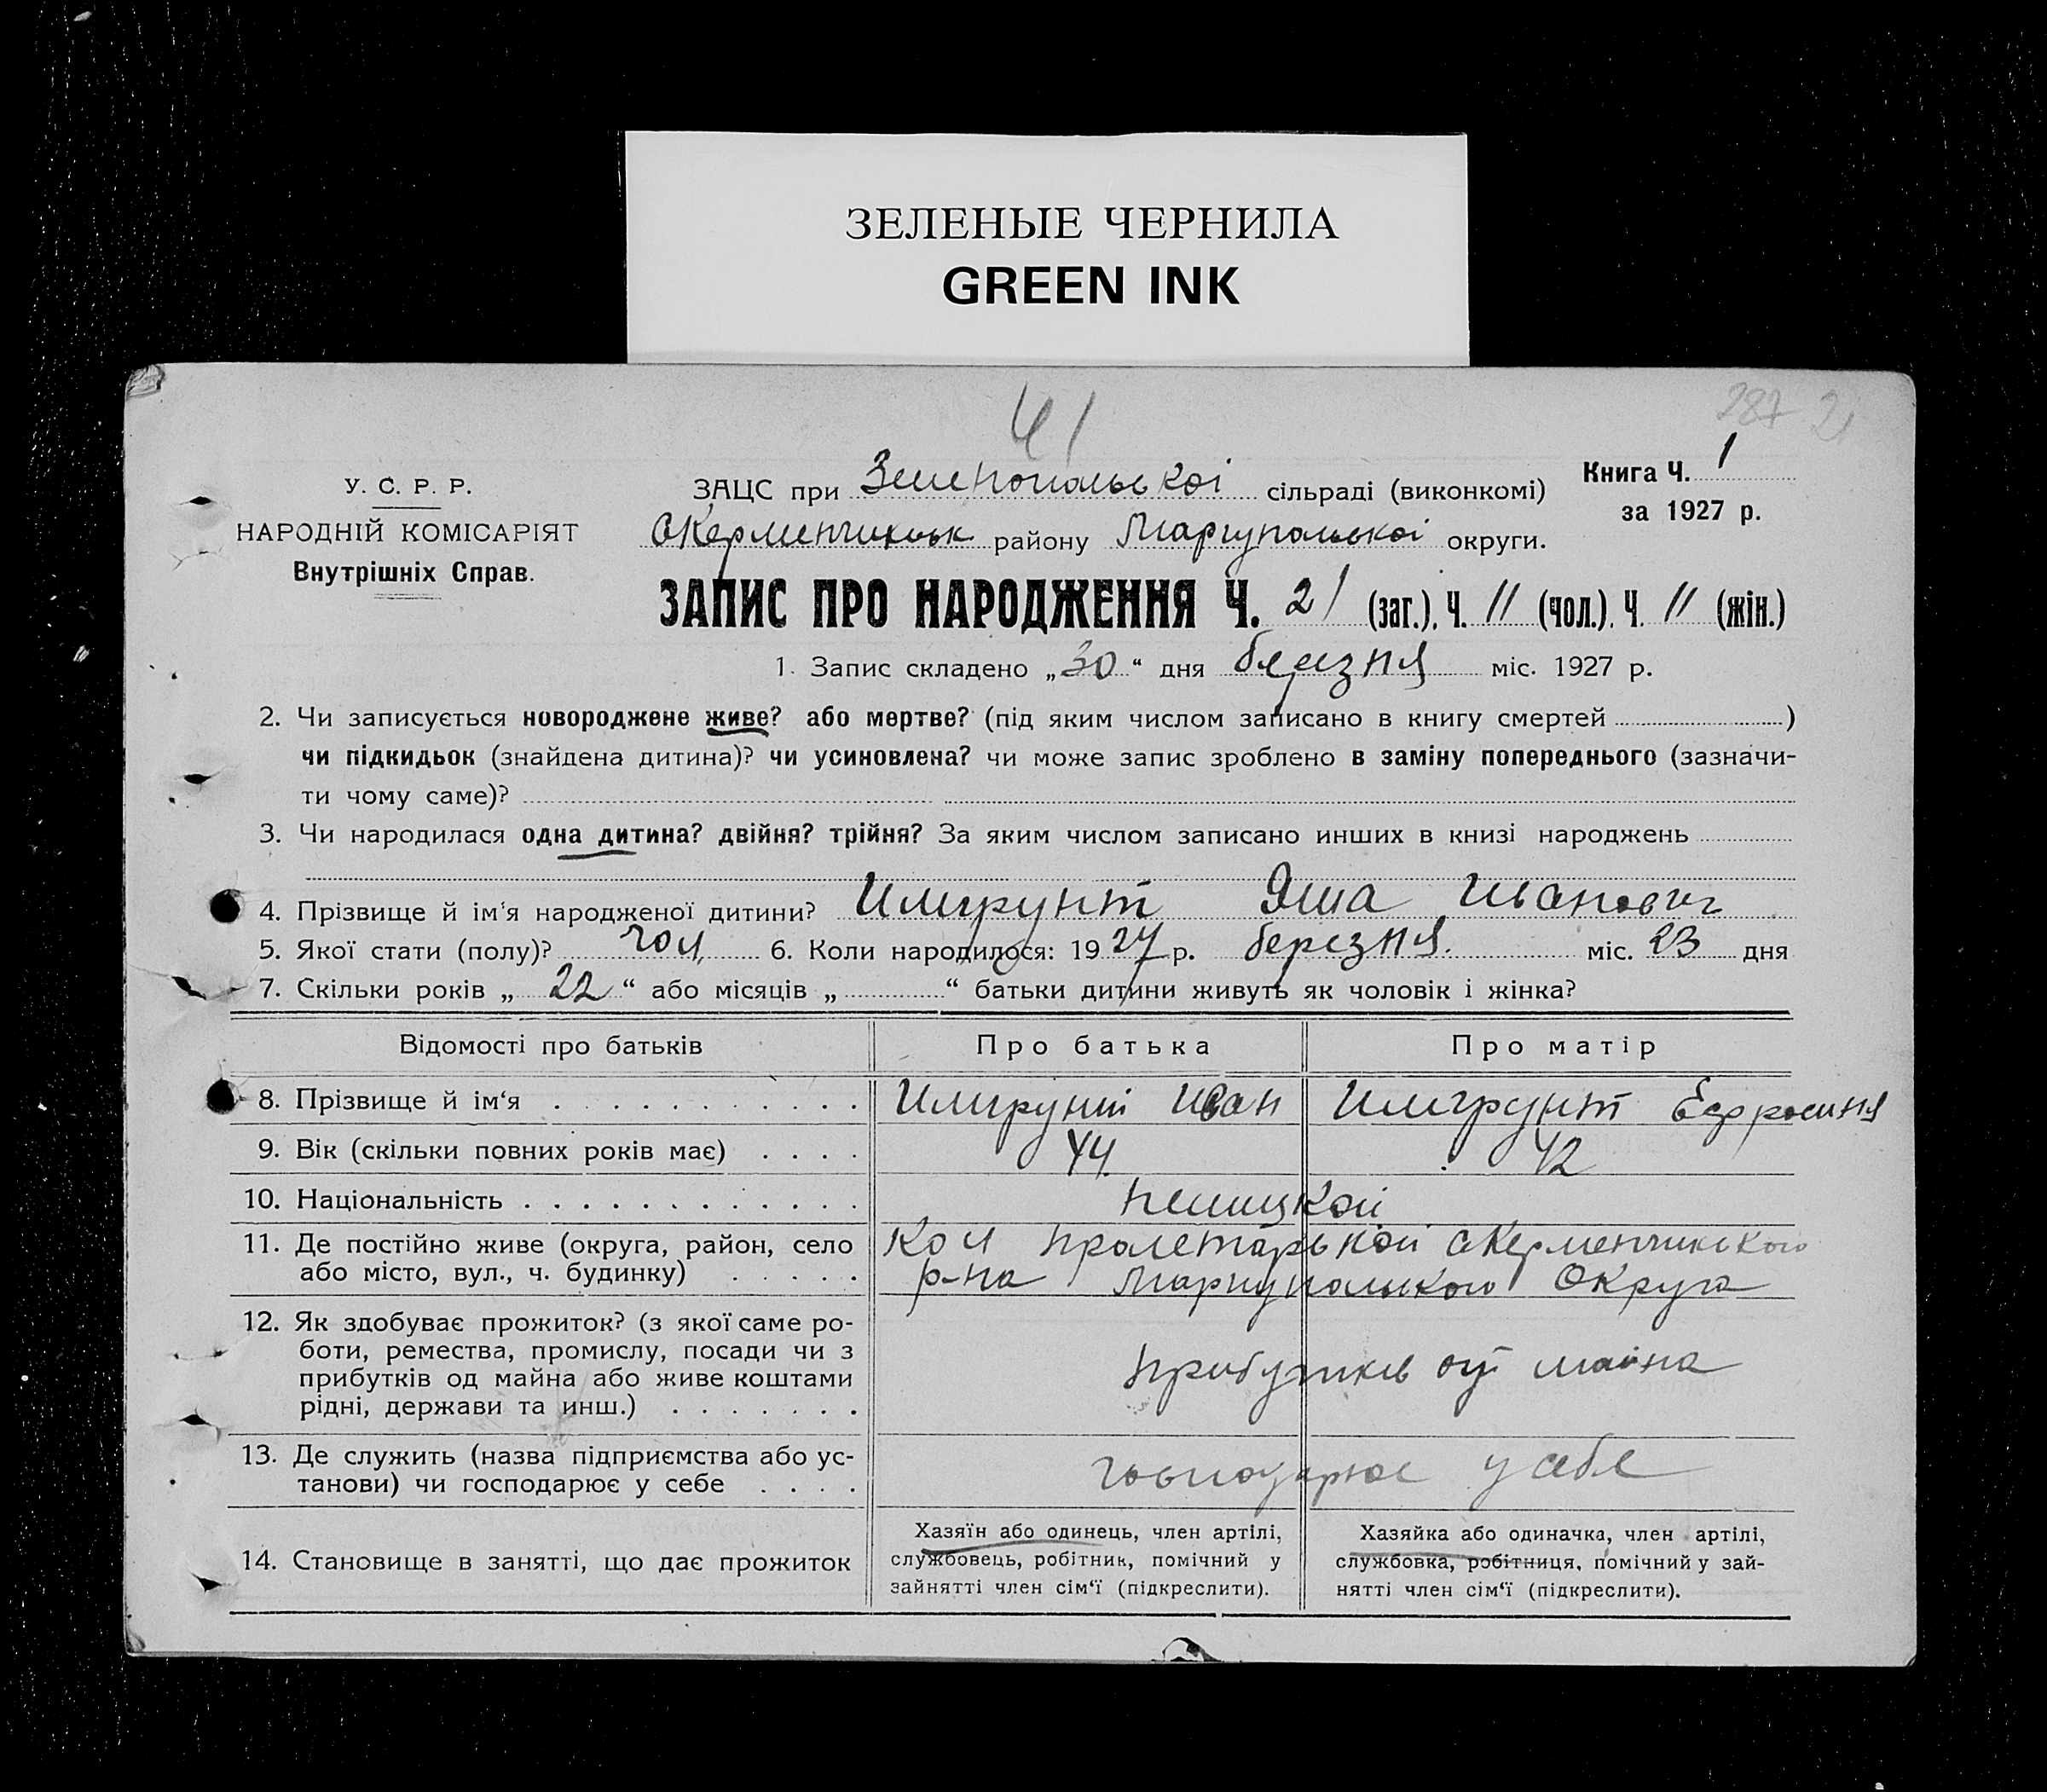 ЗЕЛЕНЫЕ ЧЕРНИЛА
GREEN INK
41
287 21
У. С. Р. Р.
НАРОДНІЙ КОМІСАРІЯТ
Внутрішніх Справ.
ЗАЦС при Зеленопольскоі сільраді (виконкомі)
Книга Ч. 1
за 1927 р.
району Маріупольськоі округи.
ЗАПИС ПРО НАРОДЖЕННЯ Ч. 21 (заг.). Ч. 11 (чол.). Ч. 11 (жін.)
1. Запис складено „30“ дня березня міс. 1927 р.
2. Чи записується новороджене живе? або мертве? (під яким числом записано в книгу смертей )
чи підкидьок (знайдена дитина)? чи усиновлена? чи може запис зроблено в заміну попереднього (зазначи-
ти чому саме)?
3. Чи народилася одна дитина? двійня? трійня? За яким числом записано инших в книзі народжень
4. Прізвище й ім‘я народженої дитини? Имгрунт Яша Иванович
5. Якої стати (полу)? чол. 6. Коли народилося: 1927 р. березня. міс. 23 дня
7. Скільки років „ 22 “ або місяців „ “ батьки дитини живуть як чоловік і жінка?
Відомості про батьків
Про батька
Про матір
8. Прізвище й ім‘я Имгрунт Иван Имгрунт
9. Вік (скільки повних років має) 44 42
10. Національність немицкой
11. Де постійно живе (округа, район, село
або місто, вул., ч. будинку)
Кол Пролетарськой
р-на Округа
12. Як здобуває прожиток? (з якої саме ро-
боти, ремества, промислу, посади чи з
прибутків од майна або живе коштами
рідні, держави та инш.)
прибутків од майна
13. Де служить (назва підприємства або ус-
танови) чи господарює у себе
господарює у себе
14. Становище в занятті, що дає прожиток
Хазяїн або одинець, член артілі,
службовець, робітник, помічний у
зайнятті член сім‘ї (підкреслити).
Хазяйка або одиначка, член артілі,
службовка, робітниця, помічний у зай-
нятті член сім‘ї (підкреслити).